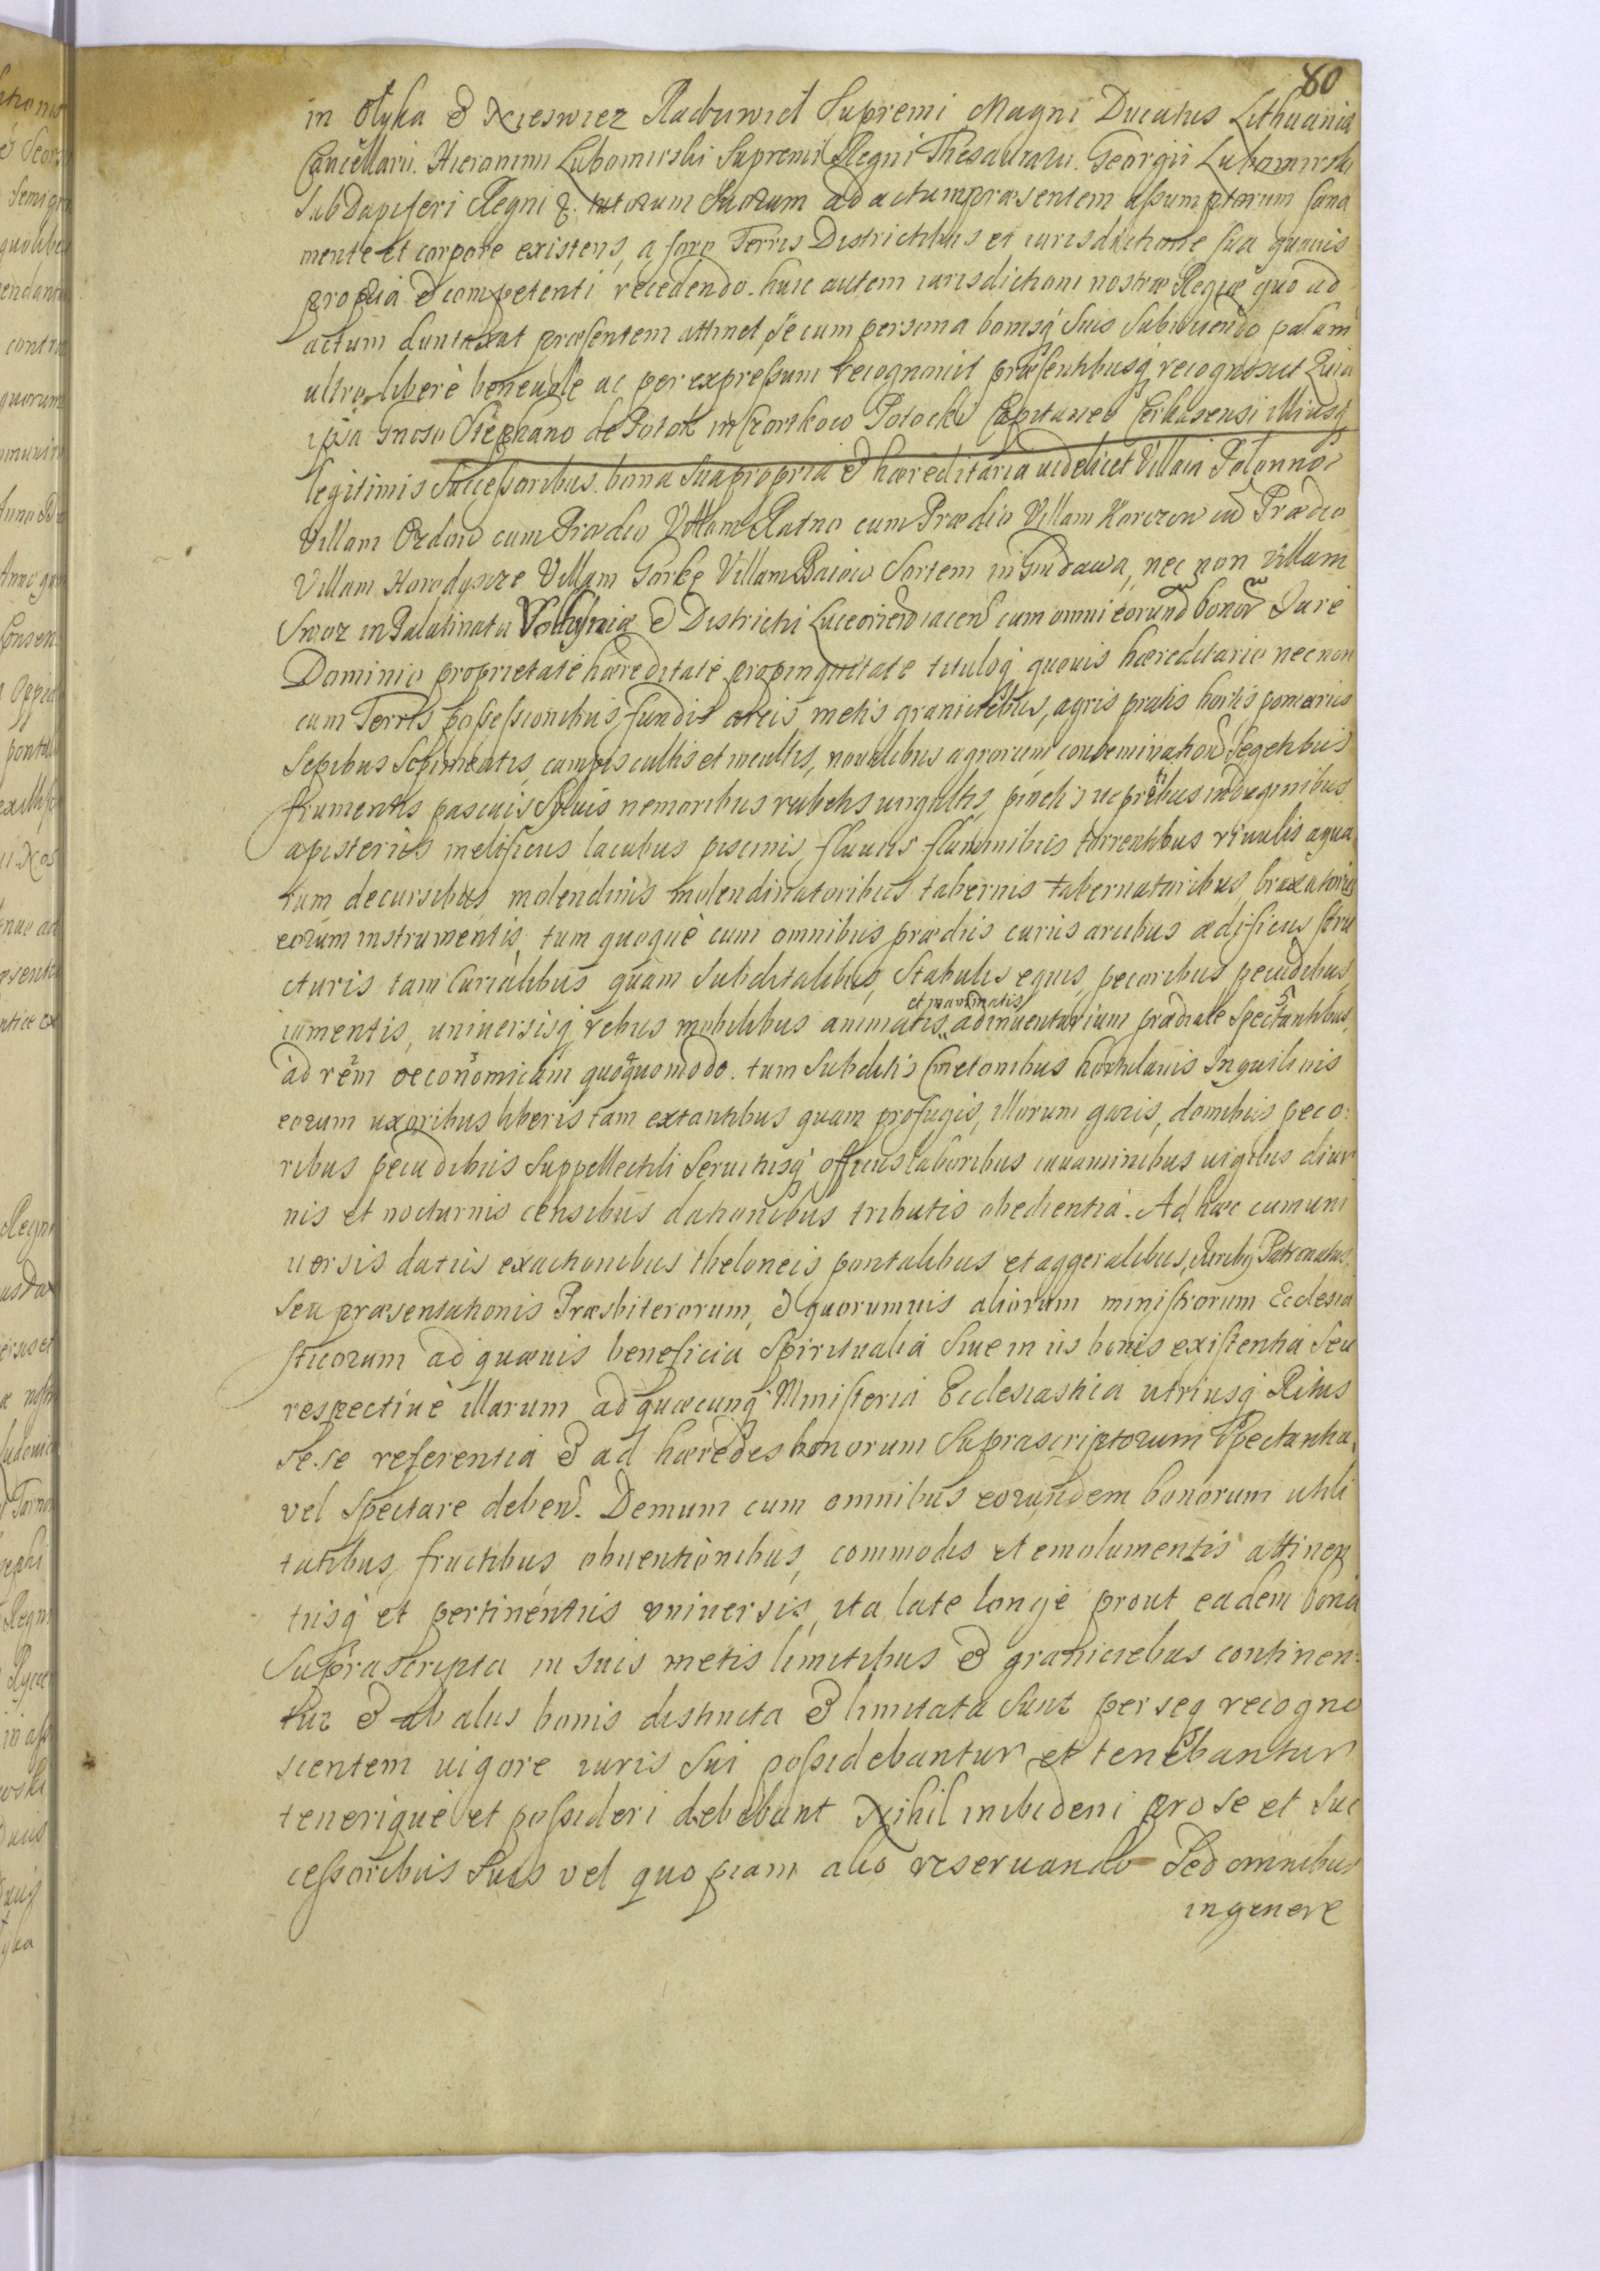 80
in Ołyka & Nieswiez Radziwieł Supremi Magni Ducatus Lithuaniæ
Cancellarii. Hieronimi Lubomirski Supremi Regni Thesaurarii. Georgii Lubomirski
SubDapiferi Regni &. tutorum Suorum ad actum præsentem assumptorum sana
mente et corpore existens, a foro Terris Districtibus et iurisdictione sua quauis
propria & competenti recedendo. huic autem iurisdictioni nostræ Regiæ quo ad
actum duntaxat præsentem attinet, se cum persona bonisq́ suis subiiciendo palam
ultro libere beneuole ac per expressum recognouit præsentibusq́ recognoscit Quia
ipsa Gnoso Stephano de Potok in Czortkow Potocki Capitaneo Cerkasensi illiusq́
legitimis Successoribus bona sua propria & hæreditaria uidelicet Villam Polonno
Villam Ozdow cum Prædio Villam Ratno cum Prædio Villam Korczow cum Prædio
Villam Horodyszcze Villam Gorkę Villam Baiow Sortem in Gnidawa, nec non Villam
Smoz in Palatinatu Volhyniæ & Districtu Luceorien iacen cum omni eorund bonor Iure
Dominio proprietate hæreditate propinquitate tituloq́ quouis hæreditario nec non
cum Terris possessionibus, fundis areis metis granitiebus, agris pratis hortis pomariis
Sepibus Sepimentis, campis cultis et incultis, noualibus agrorum conseminationib Segetibus
frumentis pascuis Syluis nemoribus rubetis uirgultis, pinetis uepribus indaginibus
apisteriis melificiis lacubus piscinis, fluuiis fluminibus torrentibus riuulis aqua
rum decursibus, molendinis molendinatoribus tabernis tabernatoribus, braxatoriis
eorum instrumentis, tum quoque cum omnibus prædiis curiis arcibus ædificiis stru
cturis tam Curialibus quam Subditalibus, Stabulis equis, pecoribus, pecudibus,
iumentis, uniuersisq́ rebus mobilibus animatis et inanimatis ad inuentarium prædiale Spectantibus,
ad rem oeconomicam quoquomodo. tum Subditis Cmetonibus hortulanis Inquilinis
eorum uxoribus liberis tam extantibus quam profugis, illorum gazis, domibus peco:
ribus pecudibus Suppellectili Seruitiisq́ officiis laboribus iuuaminibus uigiliis diur
nis et nocturnis censibus dationibus tributis obedientia. Ad hæc cum uni
uersis datiis exactionibus theloneis pontalibus et aggeralibus, Iuribq́ Patronatus,
seu præsentationis Præsbiterorum, & quorumuis aliorum ministrorum Ecclesia
sticorum ad quæuis beneficia Spiritualia Siue in iis bonis existentia Seu
respectiue illarum ad quæcunq́ Ministeria Ecclesiastica utriusq́ Ritus
se-se referentia & ad hæredes bonorum Suprascriptorum Spectantia,
vel Spectare deben. Demum cum omnibus eorundem bonorum utili
tatibus, fructibus obuentionibus, commodis et emolumentis attinen
tiisq́ et pertinentiis uniuersis, ita late longe prout eadem bona
Suprascripta in suis metis limitibus & granitiebus continen:
tur & ab aliis bonis distincta & limitata sunt perseq́ recogno
scentem uigore iuris Sui possidebantur et tenebantur
tenerique et possideri debebant Nihil inibidem pro se et Suc
cessoribus Suis vel quopiam alio reseruando Sed omnibus
in genere